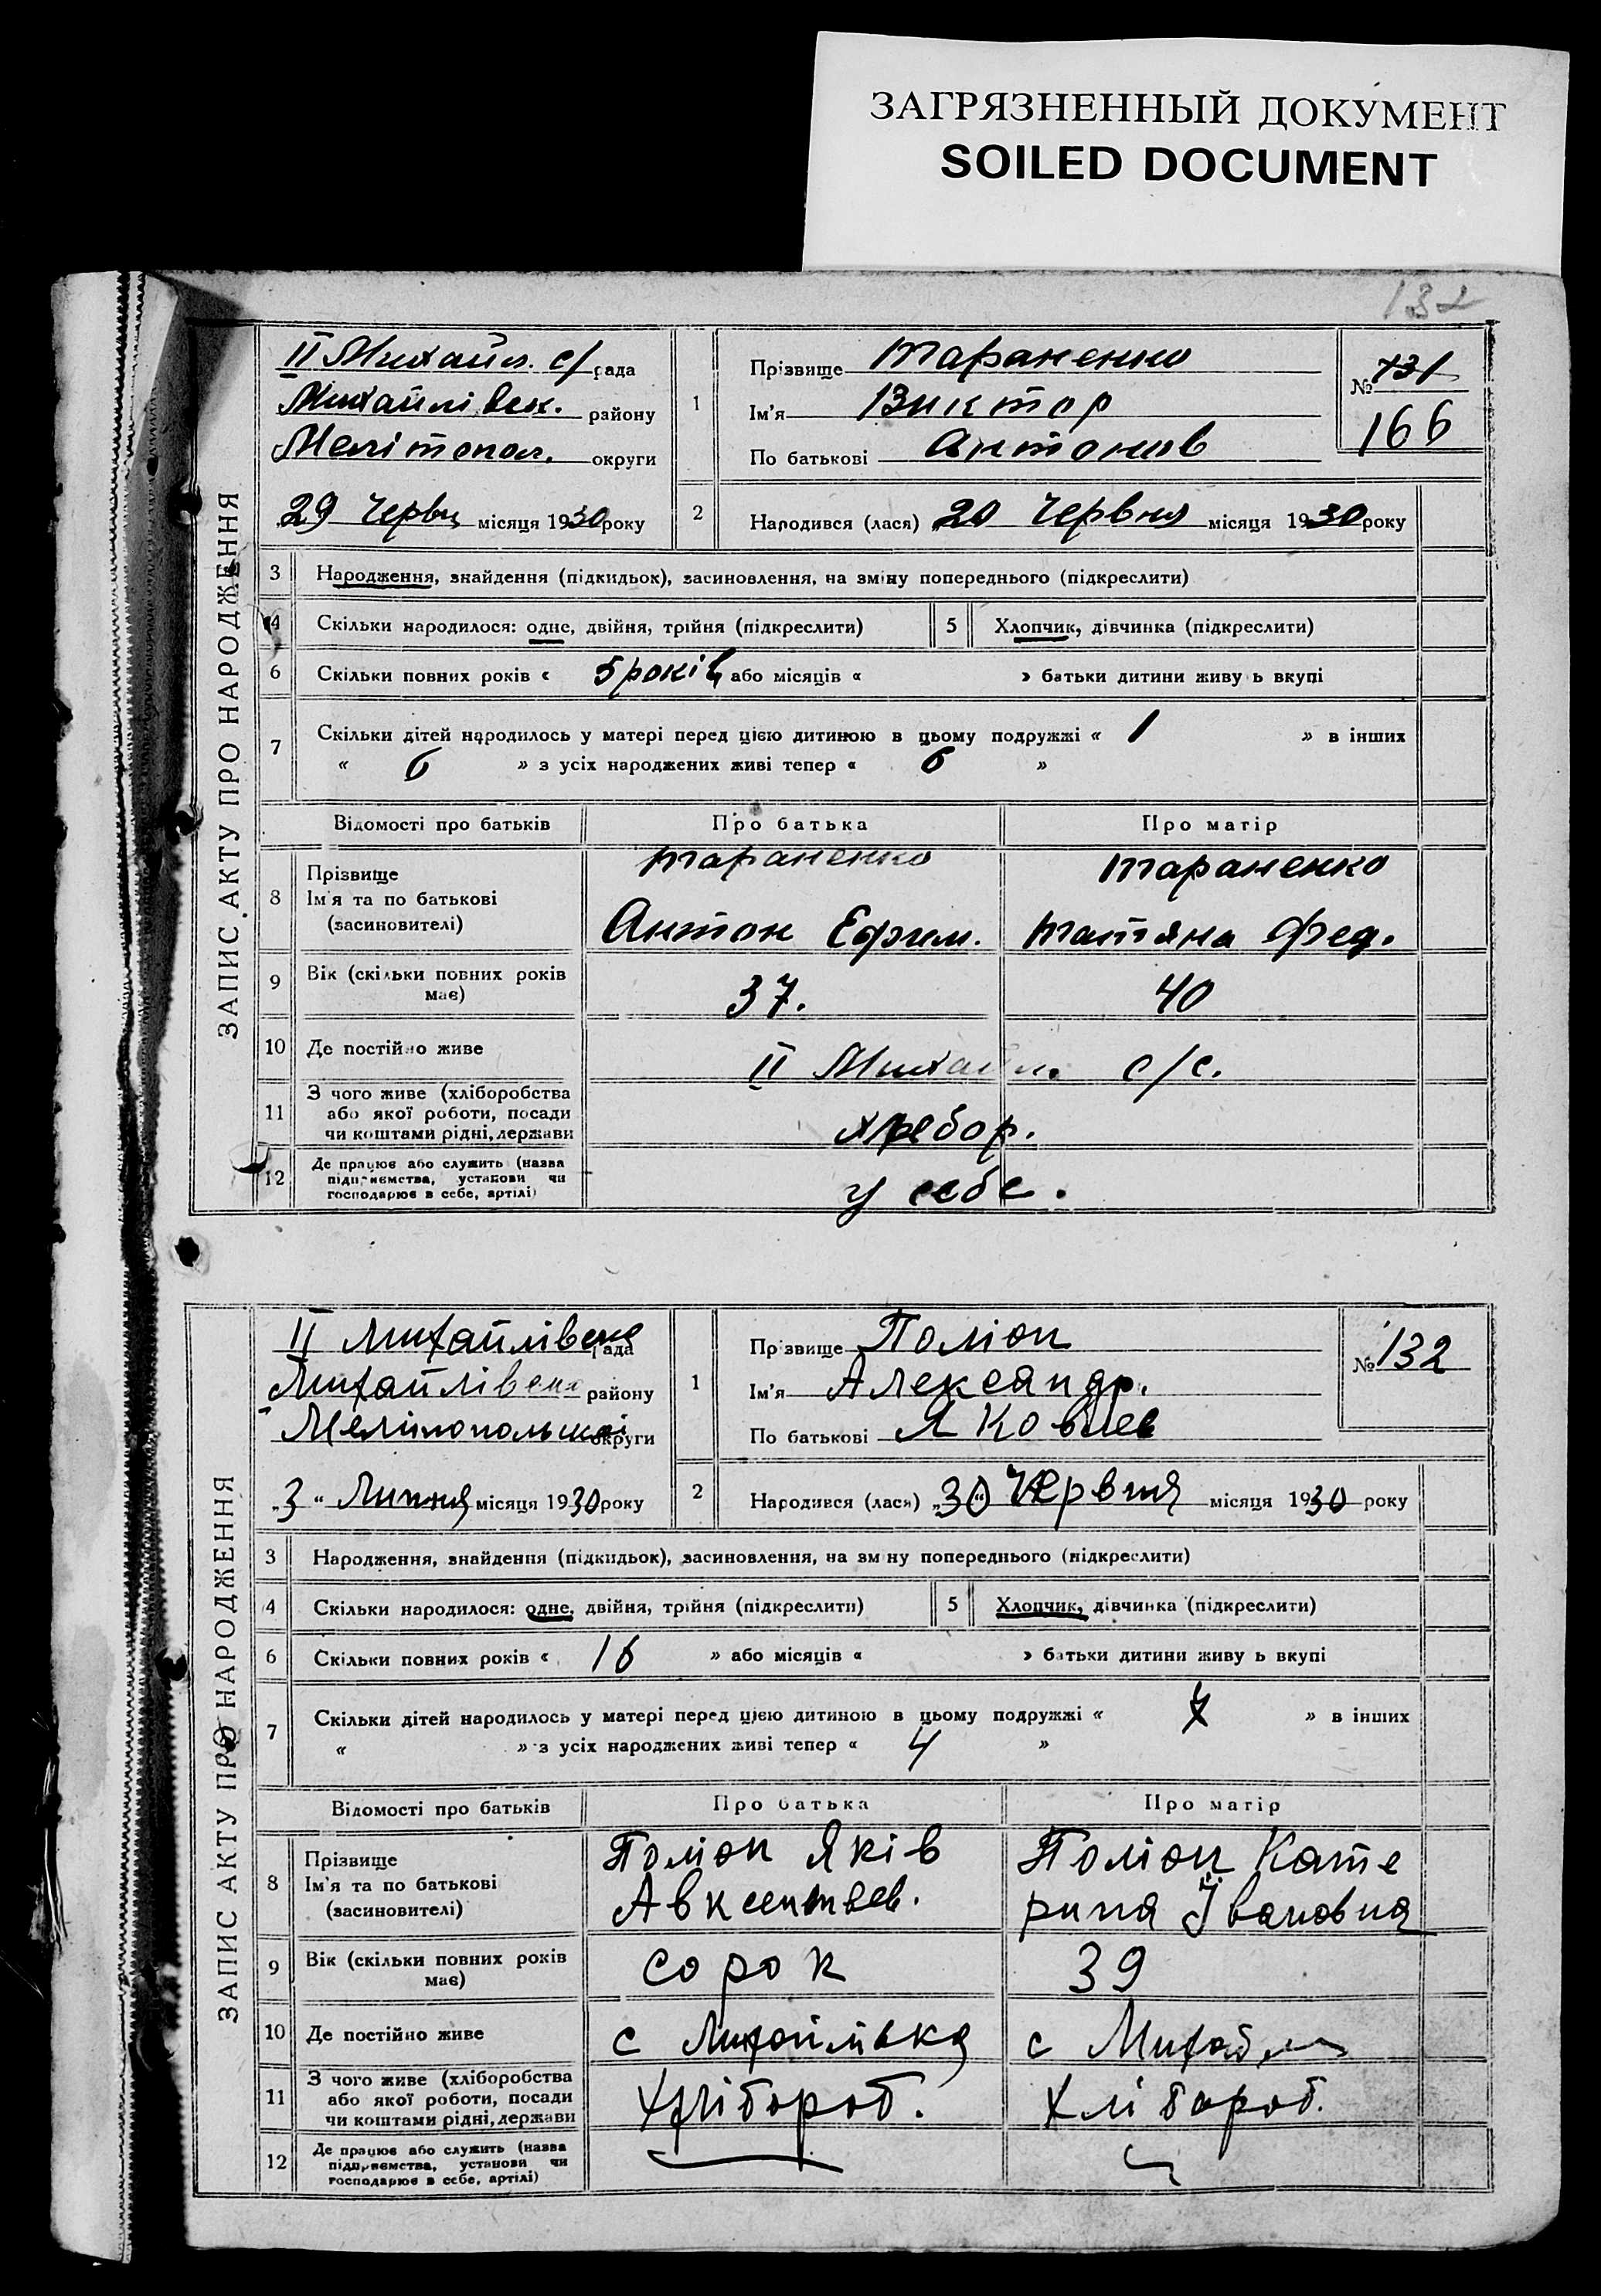 ЗАГРЯЗНЕННЫЙ ДОКУМЕНТ
SOILED DOCUMENT
132
ЗАПИС АКТУ ПРО НАРОДЖЕННЯ
ІІ Михайл. с/рада
Михайлівск. району
Мелітопол. округи
29 Червн місяця 1930 року
1
Прізвище Тараненко
Ім'я Виктор
По батькові Антонов
№ 131
166
2
Народився (лася) 20 Червня місяця 1930 року
3 Народження, знайдення (підкидьок), засиновлення, на зміну попереднього (підкреслити)
4 Скільки народилося: одне, двійня, трійня (підкреслити) 5 Хлопчик, дівчинка (підкреслити)
6 Скільки повних років « 5 років або місяців « » батьки дитини живуть вкупі
7 Скільки дітей народилось у матері перед цією дитиною в цьому подружжі « 1 » в інших
« 6 » з усіх народжених живі тепер « 6 »
Відомості про батьків Про батька Про матір
8 Прізвище Ім'я та по батькові (засиновителі)
Тараненко Тараненко
Антон Ефим. Татяна Фед.
9 Вік (скільки повних років має) 37. 40
10 Де постійно живе ІІ Михайл. с/с.
11 З чого живе (хліборобства або якої роботи, посади чи коштами рідні, держави хлебор.
12 Де працює або служить (назва підприємства, установи чи господарює в себе, артілі) у себе.
ЗАПИС АКТУ ПРО НАРОДЖЕННЯ
ІІ Михайлівська рада
Михайлівськ району
Мелітопольської округи
"3" Липня місяця 1930 року
1
Прізвище Поліон
Ім'я Александр.
По батькові Яковлев
№ 132
2
Народився (лася) "30" Червня місяця 1930 року
3 Народження, знайдення (підкидьок), засиновлення, на зміну попереднього (підкреслити)
4 Скільки народилося: одне, двійня, трійня (підкреслити) 5 Хлопчик, дівчинка (підкреслити)
6 Скільки повних років « 16 » або місяців « » батьки дитини живуть вкупі
7 Скільки дітей народилось у матері перед цією дитиною в цьому подружжі « » в інших
« » з усіх народжених живі тепер « 4 »
Відомості про батьків Про батька Про матір
8 Прізвище Ім'я та по батькові (засиновителі)
Поліон Яків Поліон Кате
Авксентьев. рина Івановна
9 Вік (скільки повних років має) сорок 39
10 Де постійно живе с Михайлівка с Михайл
11 З чого живе (хліборобства або якої роботи, посади чи коштами рідні, держави Хлібороб. Хлібороб.
12 Де працює або служить (назва підприємства, установи чи господарює в себе, артілі)